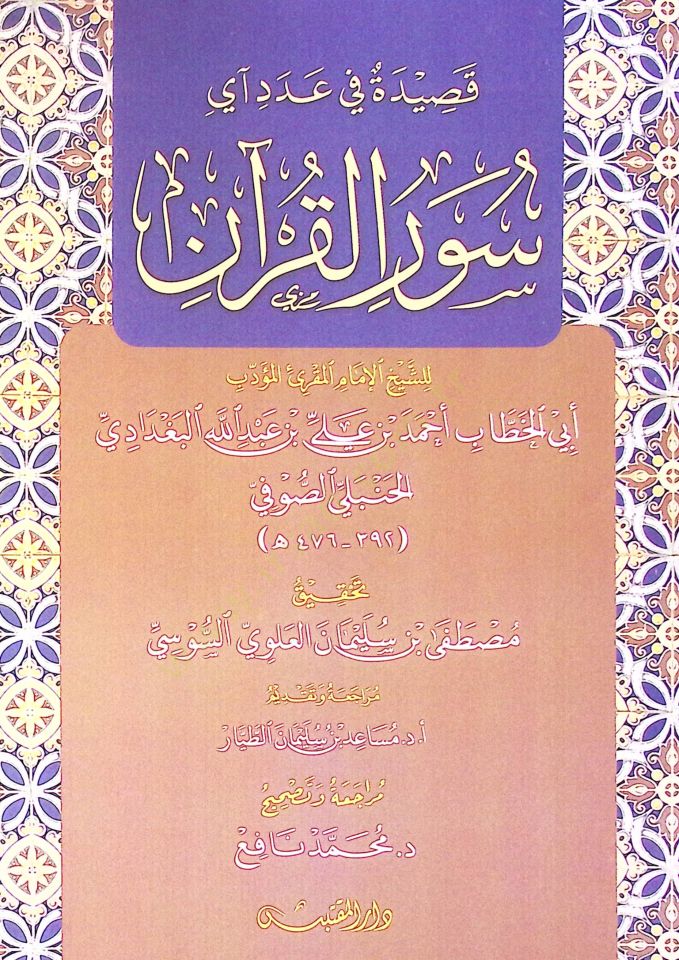 قَصِيدَةٌ فِي عَدَدِ آيِ
سُوَرِ القُرْآنِ
لِلشَّيْخِ الإِمَامِ المُقْرِئِ المُؤَدِّبِ
أَبِي الخَطَّابِ أَحْمَدَ بْنِ عَلِيِّ بْنِ عَبْدِ اللَّهِ البَغْدَادِيِّ
الحَنْبَلِيِّ الصُّوفِيِّ
(٣٩٢ - ٤٧٦ هـ)
تَحْقِيقُ
مُصْطَفَى بْنِ سُلَيْمَانَ العَلَوِيِّ السُّوسِيِّ
مُرَاجَعَةُ وَتَقْدِيمُ
أ. د. مُسَاعِد بْنُ سُلَيْمَانَ الطَّيَّار
مُرَاجَعَةُ وَتَصْحِيحُ
د. مُحَمَّد نَافِعْ
دار المقتبس